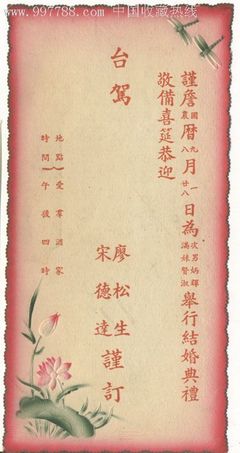 www.997788.com 中国收藏热线
謹詹國農曆九八月一廿八日為次男炳輝滿妹賢淑舉行結婚典禮
敬備喜筵恭迎
台駕
廖松生
宋德達
謹訂
地點︵愛群酒家
時間︵午後四時